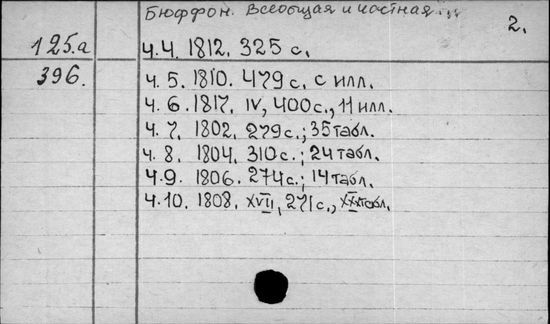 Бюффон. Всеобщая и частная...
2.
125.а ч.4. 1812. 325 с.
396. ч.5. 1810. 479 с. с илл.
ч.6. 1817. IV, 400 с., 11 илл.
ч.7. 1802. 279 с.; 35 табл.
ч.8. 1804. 310 с.; 24 табл.
ч.9. 1806. 274 с.; 14 табл.
ч.10. 1808. XVII, 271 с., XXX табл.